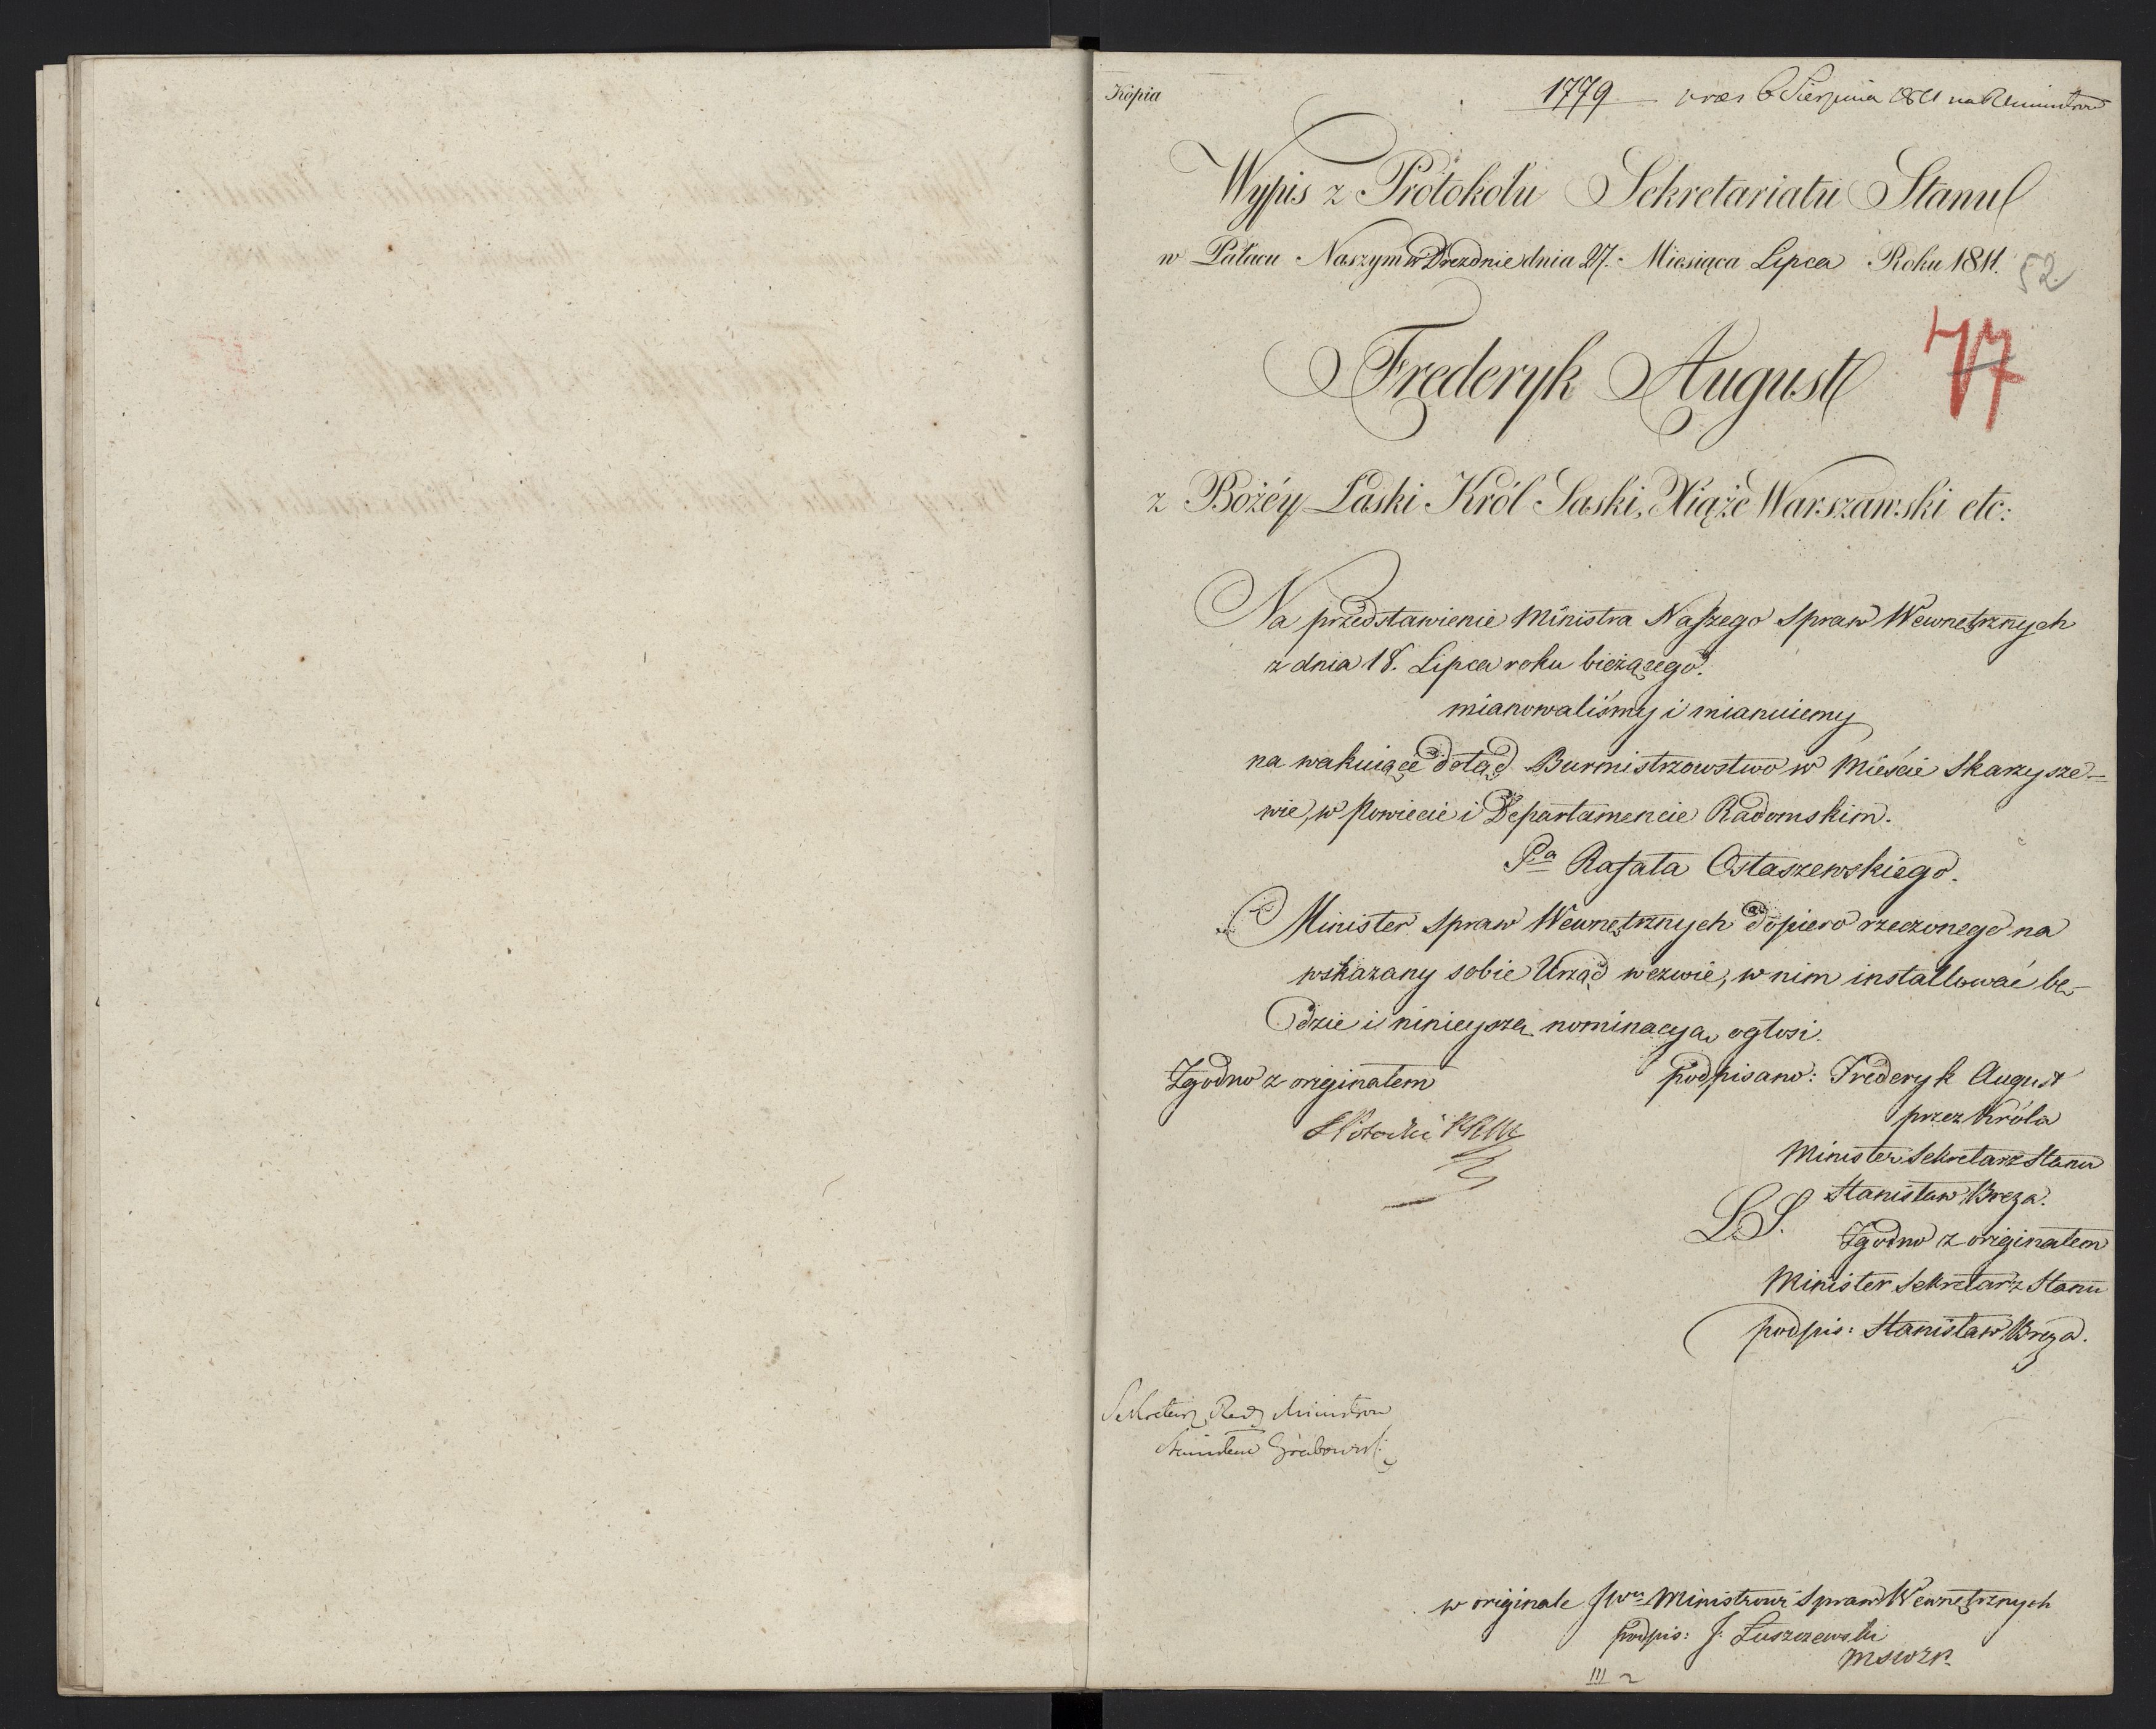 Kopia
1779 praes 6 Sierpnia 1811 na R Ministrow
Wypis z Protokołu Sekretariatu Stanu
w Pałacu Naszym w Dreznie dnia 27. Miesiąca Lipca Roku 1811.
52
77
Frederyk August
z Bożéy Łaski Król Saski, Xiąże Warszawski etc:
Na przedstawienie Ministra Naszego Spraw Wewnętrznych
z dnia 18. Lipca roku bieżącego.
mianowaliśmy i mianuiemy
na wakuiące dotąd Burmistrzowstwo w Mieście Skaryszę-
wie, w Powiecie i Departamencie Radomskim.
Pa Rafała Ostaszewskiego.
Minister Spraw Wewnętrznych dopiero rzeczonego na
wskazany sobie Urząd wezwie, w nim installować bę-
dzie i ninieyszą nominacyą ogłosi.
Zgodno z originałem
podpisano: Frederyk August
przez Króla
Minister Sekretarz Stanu
Stanisław Breza.
L.S.
Zgodno z originałem
Minister Sekretarz Stanu
podpis: Stanisław Breza.
Sekretarz Rady Ministrow
Stanisław Grabowski
w originale JWu Ministrowi Spraw Wewnętrznych
podpis: J: Łuszczewski
MSWZR
III